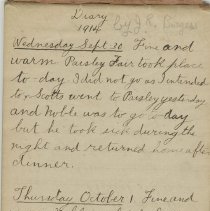 Diary
1914 by J. R. Burgess
Wednesday Sept. 30 Fine and
warm Paisley Fair took place
to-day I did not go as I intended
to Scotts went to Paisley yesterday
and Noble was to go to-day
but he took sick during the
night and returned home after
dinner.
Thursday October 1. Fine and